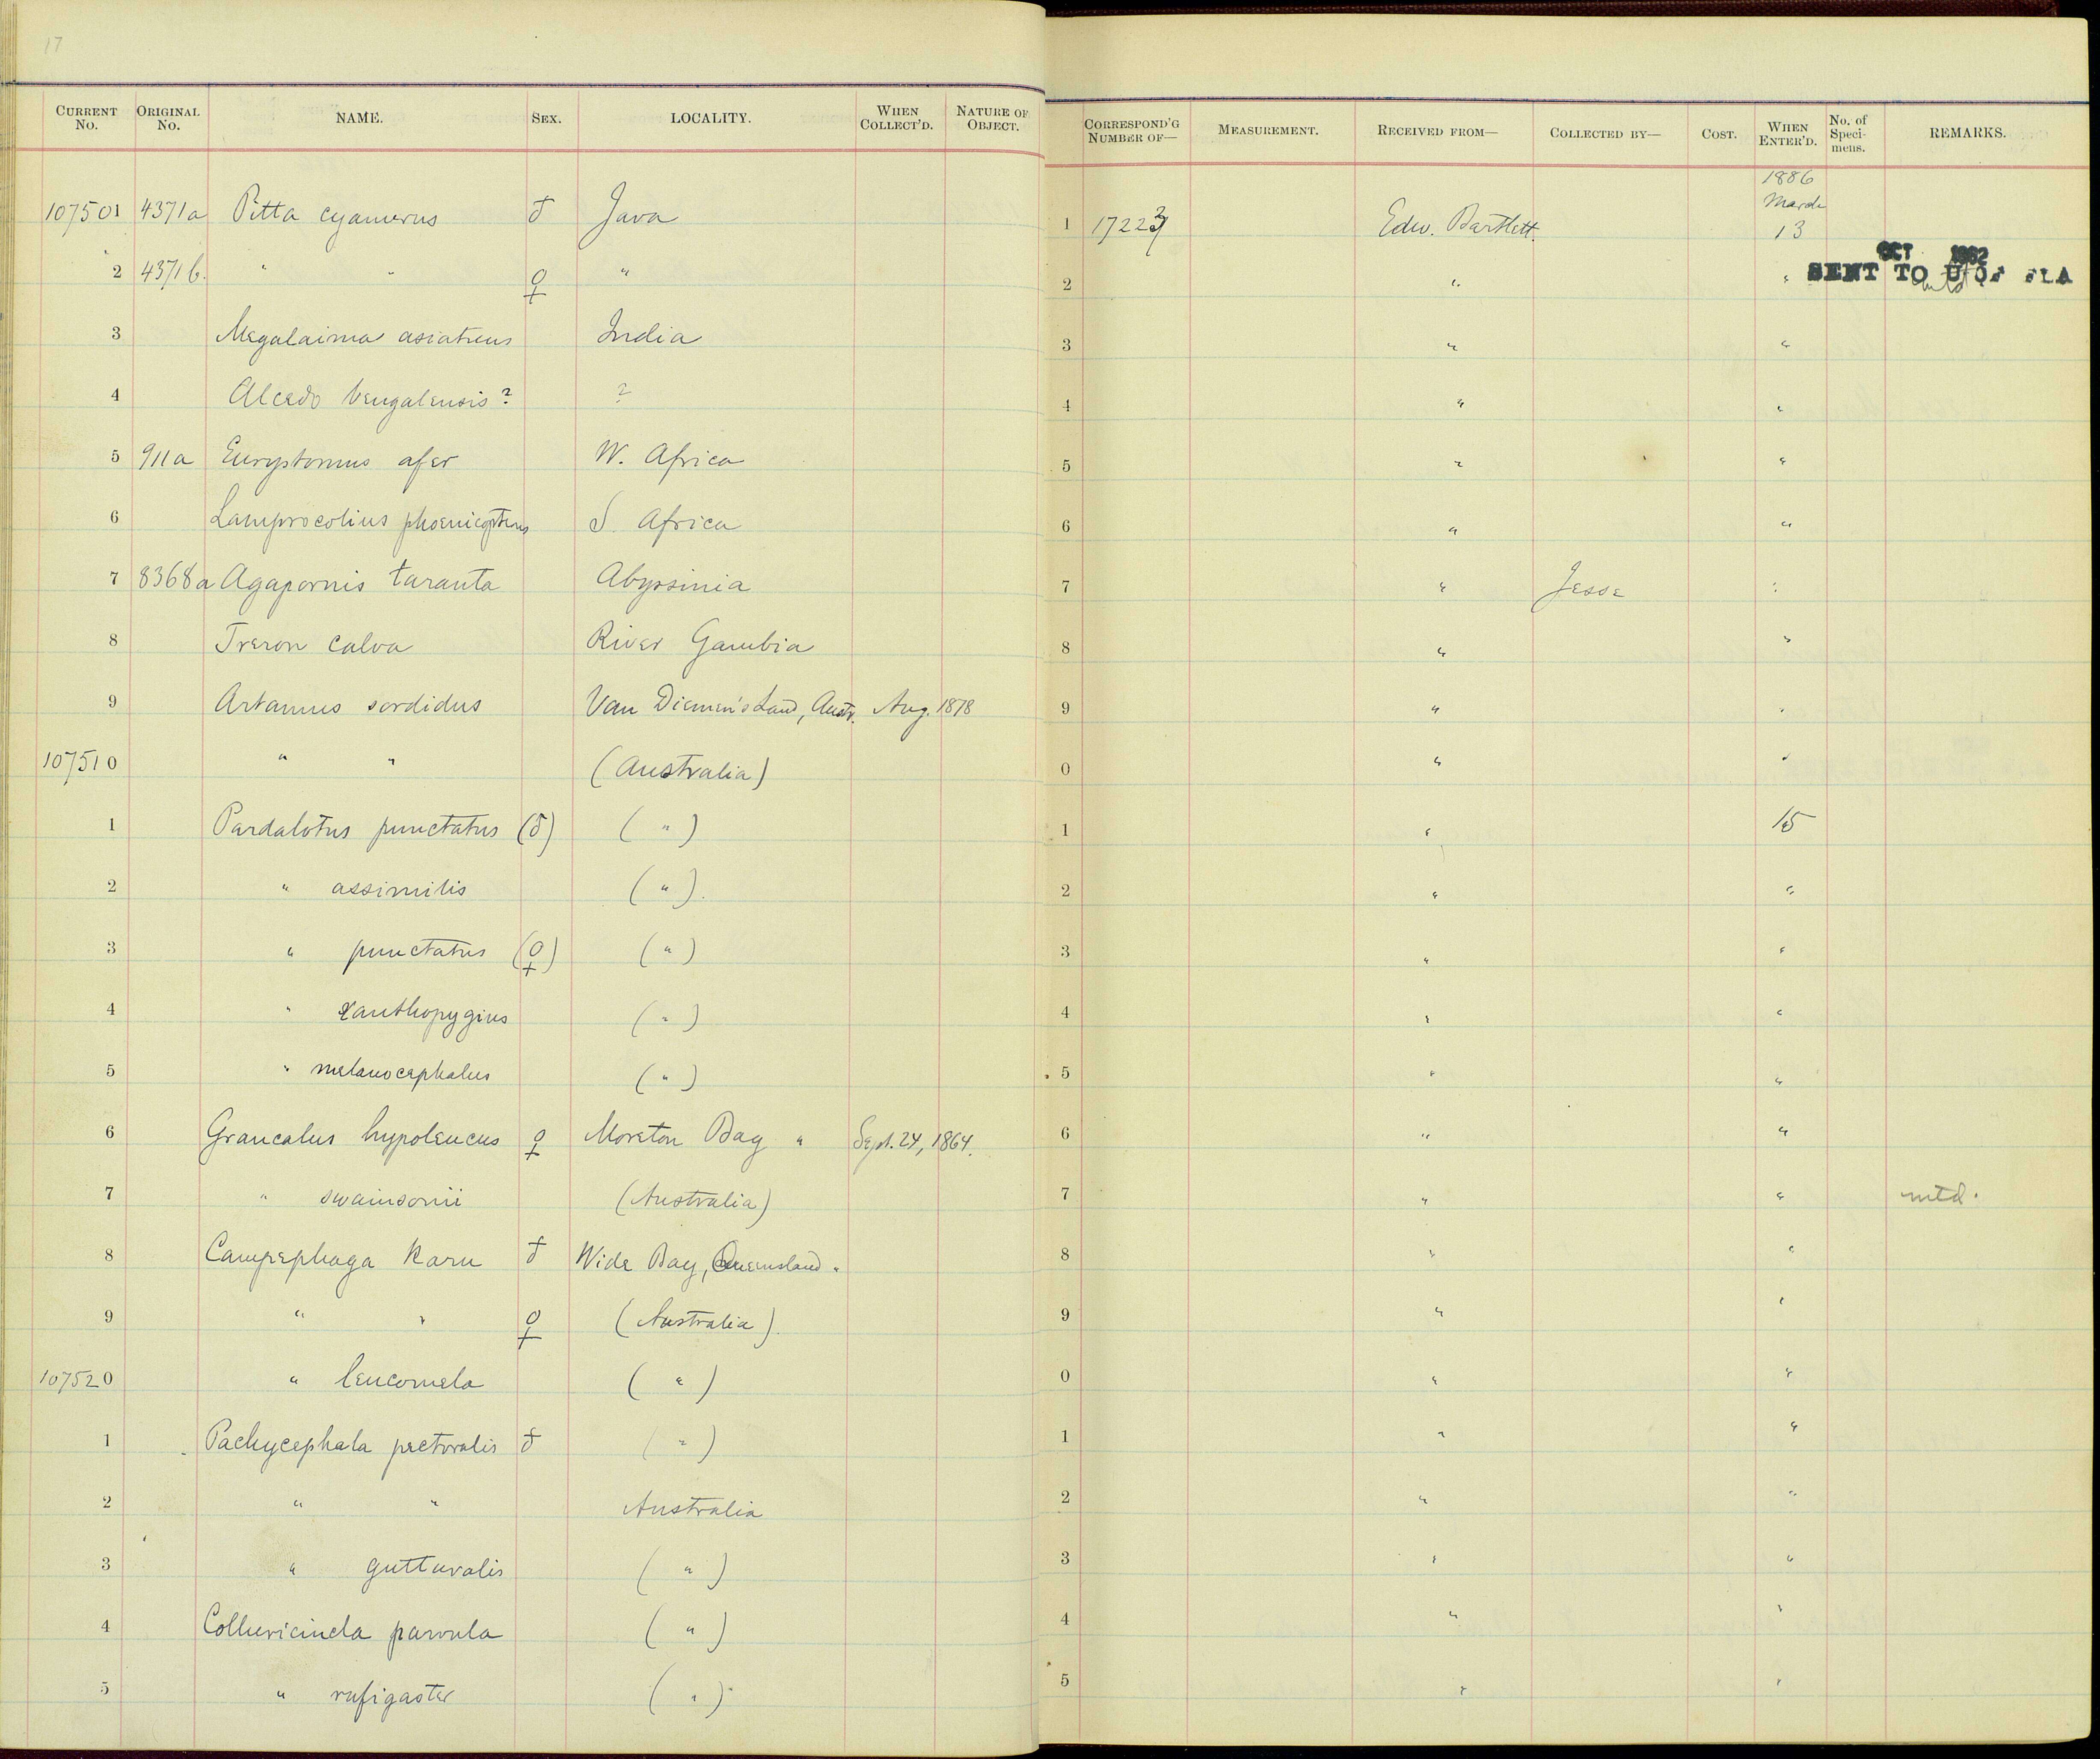 17
CURRENT No. ORIGINAL No. NAME. SEX. LOCALITY. WHEN COLLECT'D. NATURE OF OBJECT. CORRESPOND'G NUMBER OF— MEASUREMENT. RECEIVED FROM— COLLECTED BY— COST. WHEN ENTER'D. No. of Specimens. REMARKS.
1886
March
107501 4371a Pitta cyanurus ♂ Java 1 17223 Edw. Bartlett. 13
OCT 1962
2 4371b. " " ♀ " 2 " " SENT TO U OF FLA
3 Megalaima asiaticus India 3 " "
4 Alcedo bengalensis? ? 4 " "
5 911a Eurystomus afer W. Africa 5 " "
6 Lamprocolius phoenicopterus S. Africa 6 " "
7 8368a Agapornis taranta Abyssinia 7 " Jesse "
8 Treron calva River Gambia 8 " "
9 Artamus sordidus Van Diemen's Land, Austr. Aug. 1878 9 " "
107510 " " (Australia) 0 " "
1 Pardalotus punctatus (♂) ( " ) 1 " 15
2 " assimilis ( " ). 2 " "
3 " punctatus (♀) ( " ) 3 " "
4 " xanthopygius ( " ) 4 " "
5 " melanocephalus ( " ) 5 " "
6 Graucalus hypoleucus ♀ Moreton Bay " Sept. 24, 1864. 6 " "
7 " swainsonii (Australia) 7 " " mtd.
8 Campephaga Karu ♂ Wide Bay, Queensland " 8 " "
9 " " ♀ (Australia). 9 " "
107520 " leucomela ( " ) 0 " "
1 Pachycephala pectoralis ♂ ( " ) 1 " "
2 " " Australia 2 " "
3 " gutturalis ( " ) 3 " "
4 Colluricincla parvula ( " ) 4 " "
5 " rufigaster ( " ) 5 " "